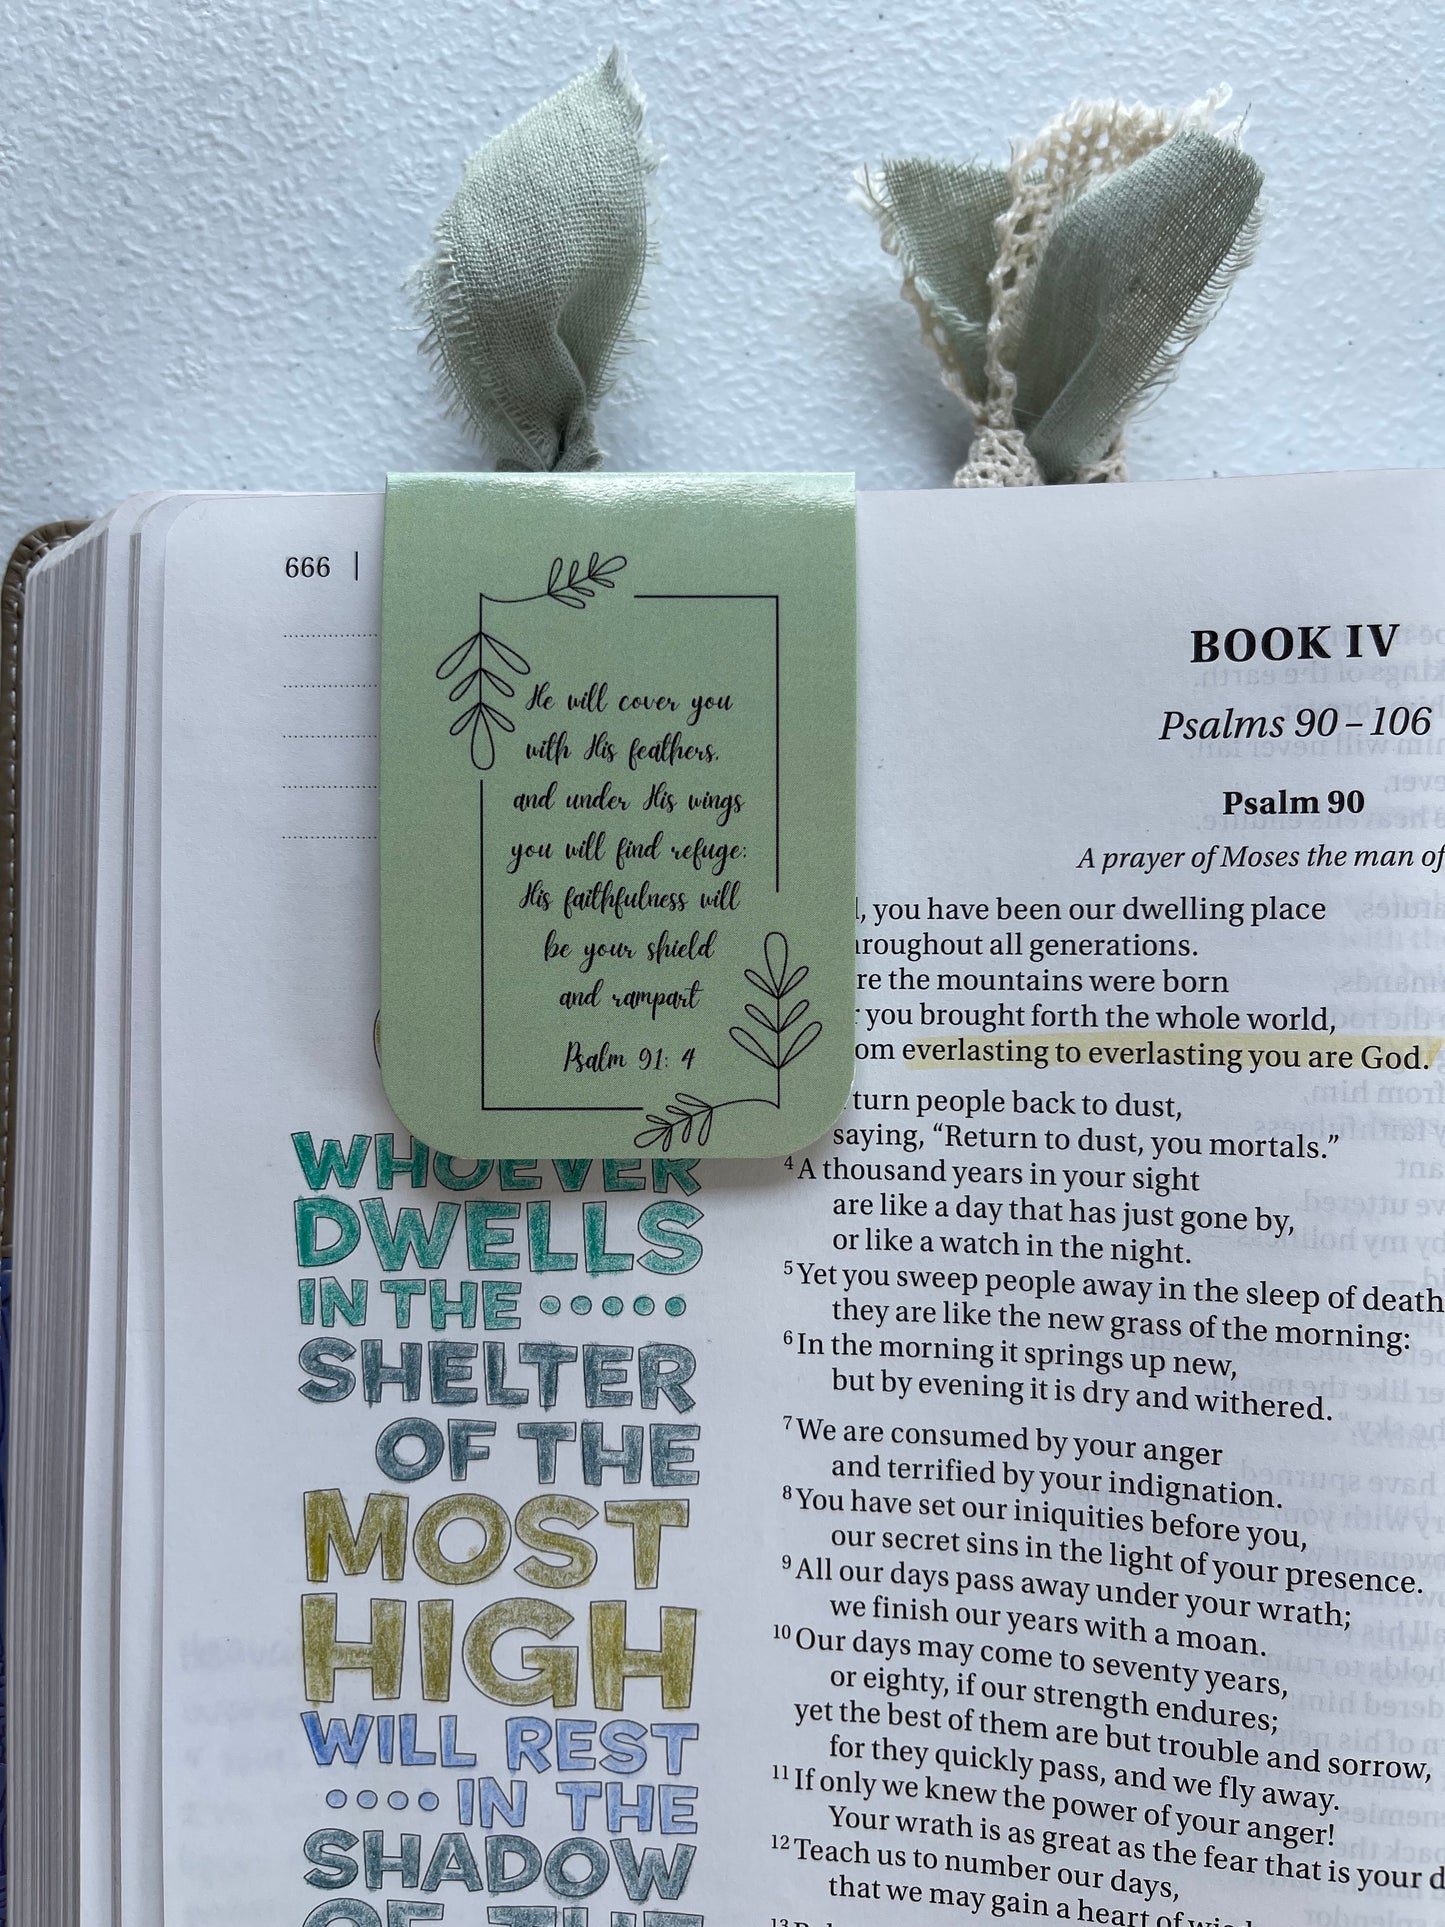 666 |
He will cover you
with His feathers,
and under His wings
you will find refuge:
His faithfulness will
be your shield
and rampart
Psalm 91: 4
WHOEVER
DWELLS
IN THE
SHELTER
OF THE
MOST
HIGH
WILL REST
IN THE
SHADOW
OF THE
BOOK IV
Psalms 90–106
Psalm 90
A prayer of Moses the man of
you have been our dwelling place
all generations.
the mountains were born
you brought forth the whole world,
everlasting to everlasting you are God.
turn people back to dust,
saying, “Return to dust, you mortals.”
4 A thousand years in your sight
are like a day that has just gone by,
or like a watch in the night.
5 Yet you sweep people away in the sleep of death
they are like the new grass of the morning:
6 In the morning it springs up new,
but by evening it is dry and withered.
7 We are consumed by your anger
and terrified by your indignation.
8 You have set our iniquities before you,
our secret sins in the light of your presence.
9 All our days pass away under your wrath;
we finish our years with a moan.
10 Our days may come to seventy years,
or eighty, if our strength endures;
yet the best of them are but trouble and sorrow,
for they quickly pass, and we fly away.
11 If only we knew the power of your anger!
Your wrath is as great as the fear that is your
12 Teach us to number our days,
that we may gain a heart of
13